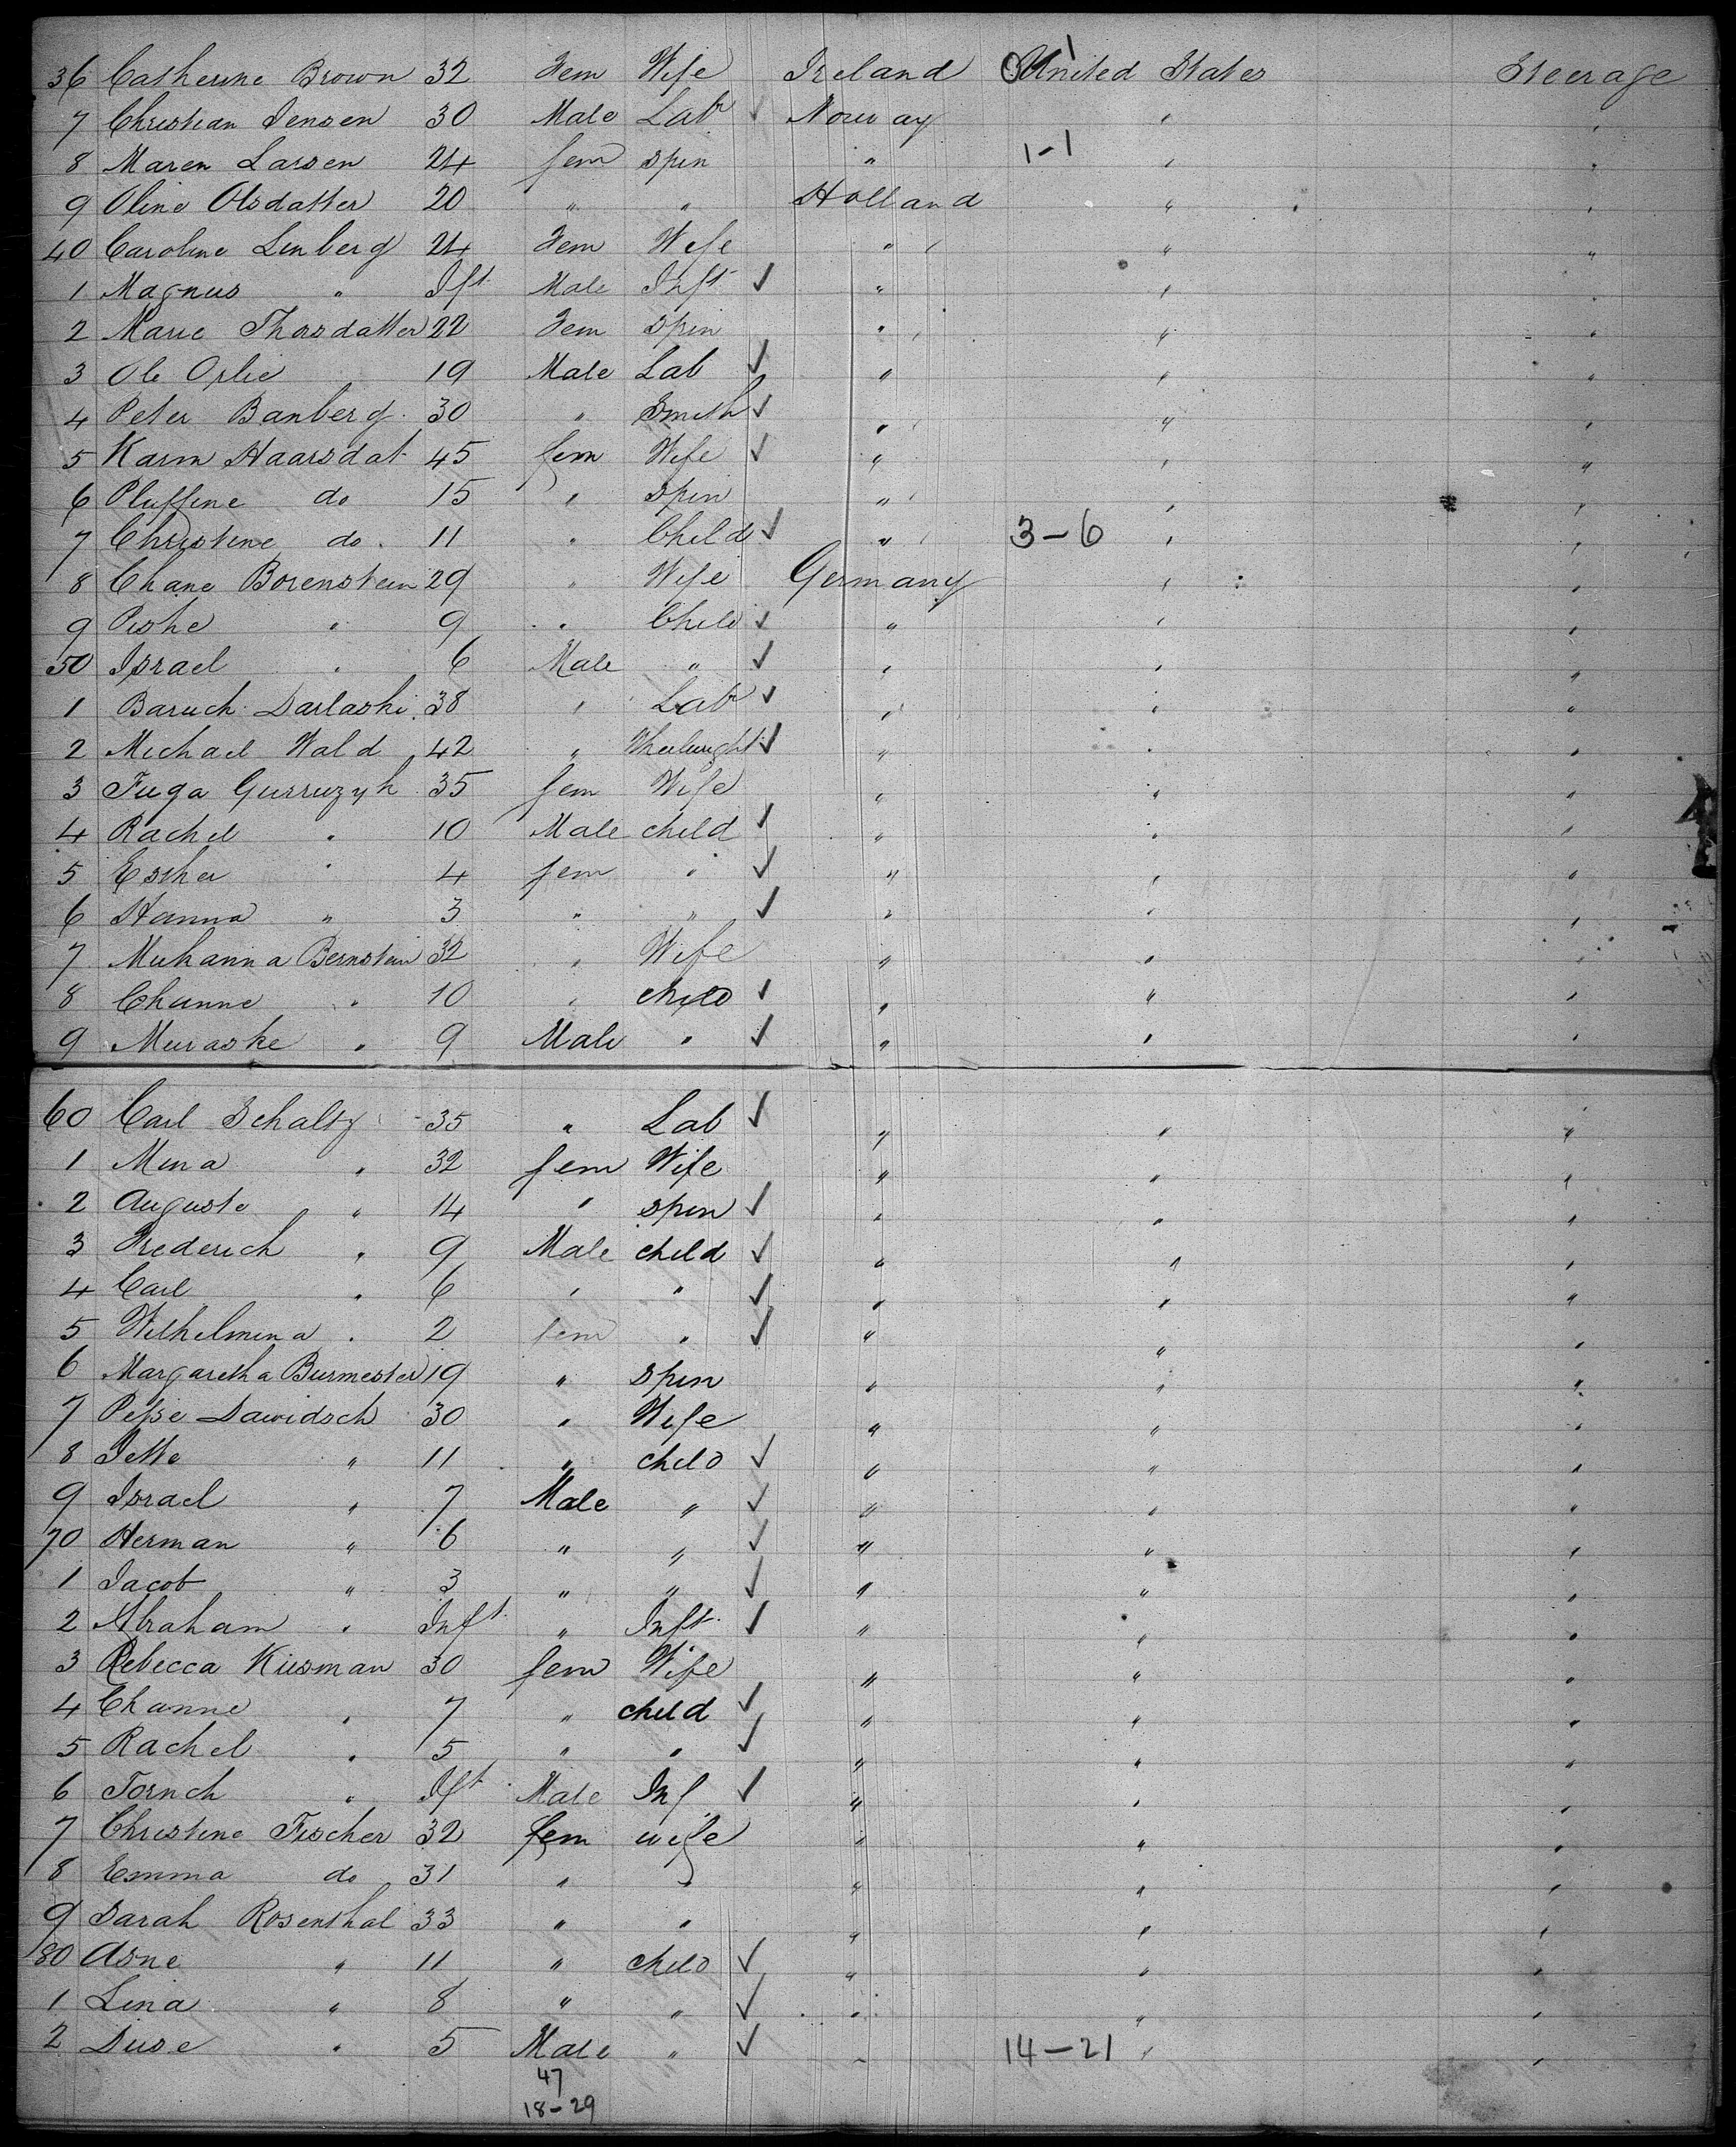 36 Catherine Brown 32 Fem Wife Ireland 1 United States Steerage
7 Christian Jensen 30 Male Labr ✓ Norway " "
8 Maren Larsen 24 fem spin " 1-1 " "
9 Oline Olsdatter 20 " " Holland " "
40 Caroline Linberg 24 Fem Wife " " "
1 Magnus " Ift Male Inft ✓ " " "
2 Marie Thorsdatter 22 Fem spin " " "
3 Ole Orlie 19 Male Lab ✓ " " "
4 Peter Banberg 30 " Smith ✓ " " "
5 Karin Haarsdat 45 fem Wife ✓ " " "
6 Pluffine do 15 " spin " " "
7 Christine do. 11 " Child ✓ " 3-6 " "
8 Chane Borenstein 29 " Wife Germany " "
9 Peshe " 9 " Child ✓ " " "
50 Israel " 6 Male " ✓ " " "
1 Baruch Sarlaski 38 " Labr ✓ " " "
2 Michael Wald 42 " Wheelwright ✓ " " "
3 Fuga Gurruzyk 35 fem Wife " " "
4 Rachel " 10 Male child ✓ " " "
5 Esther " 4 fem " ✓ " " "
6 Hanna " 3 " " ✓ " " "
7 Muhanna Bernstein 32 " Wife " " "
8 Channe " 10 " child ✓ " " "
9 Muraske " 9 Male " ✓ " " "
60 Carl Schaltz 35 " Lab ✓ " " "
1 Mina " 32 fem Wife " " "
2 Auguste " 14 " spin ✓ " " "
3 Frederich " 9 Male child ✓ " " "
4 Carl " 6 " " ✓ " " "
5 Wilhelmina " 2 fem " ✓ " " "
6 Margaretha Burmester 19 " spin " " "
7 Pesse Dawidsch 30 " Wife " " "
8 Jette " 11 " child ✓ " " "
9 Israel " 7 Male " ✓ " " "
70 Herman " 6 " " ✓ " " "
1 Jacob " 3 " " ✓ " " "
2 Abraham " Inft " Inft ✓ " " "
3 Rebecca Kiesman 30 fem Wife " " "
4 Channe " 7 " child ✓ " " "
5 Rachel " 5 " " ✓ " " "
6 Tornch " Ift Male Inf ✓ " " "
7 Christine Fischer 32 fem wife " " "
8 Emma do 31 " " " " "
9 Sarah Rosenthal 33 " " " " "
80 Asne " 11 " child ✓ " " "
1 Lina " 8 " " ✓ " " "
2 Suse " 5 Male " ✓ " 14-21 " "
47
18-29